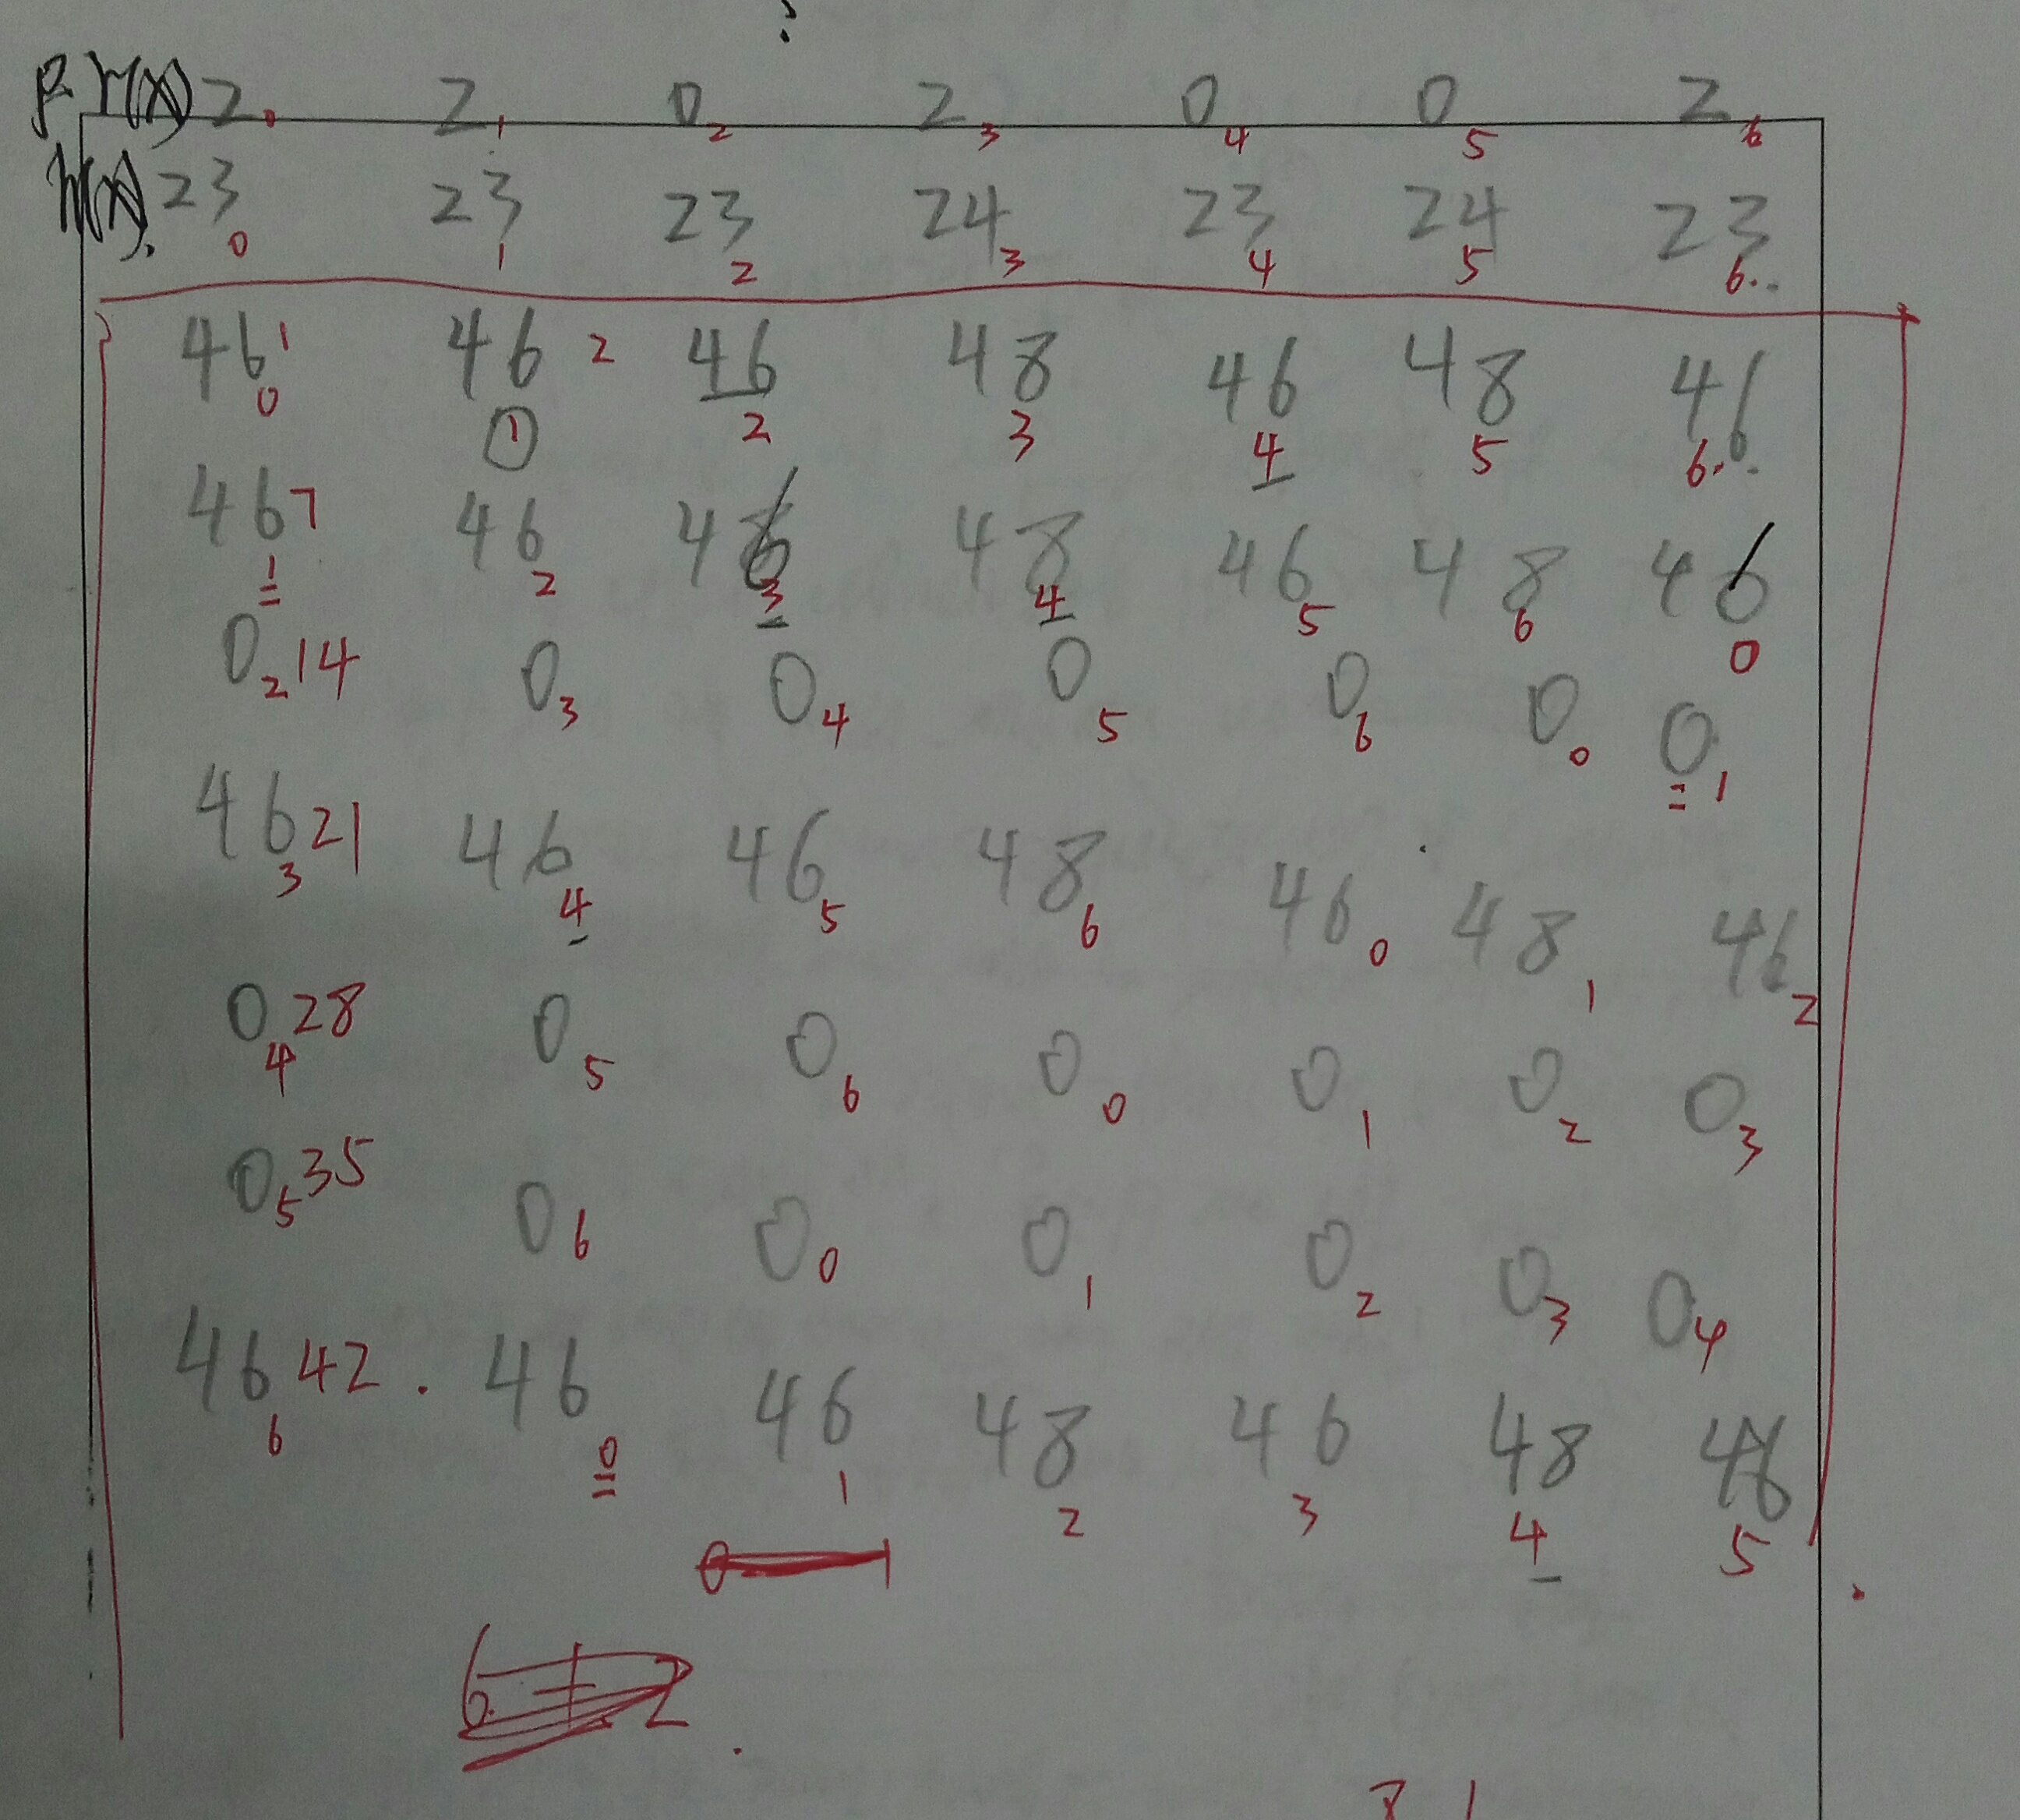 r(x) 2 0 2 1 0 2 2 3 0 4 0 5 2 6
h(x). 23 0 23 1 23 2 24 3 23 4 24 5 23 6..
46 1 46 2 46 48 46 48 46
0 1 2 3 4 5 6.
46 7 46 46 48 46 48 46
1 2 3 4 5 6 0
0 2 14 0 3 0 4 0 5 0 6 0 0 0 1
46 3 21 46 4 46 5 48 6 46 0 48 1 46 2
0 4 28 0 5 0 6 0 0 0 1 0 2 0 3
0 5 35 0 6 0 0 0 1 0 2 0 3 0 4
46 42 . 46 46 48 46 48 46
6 0 1 2 3 4 5